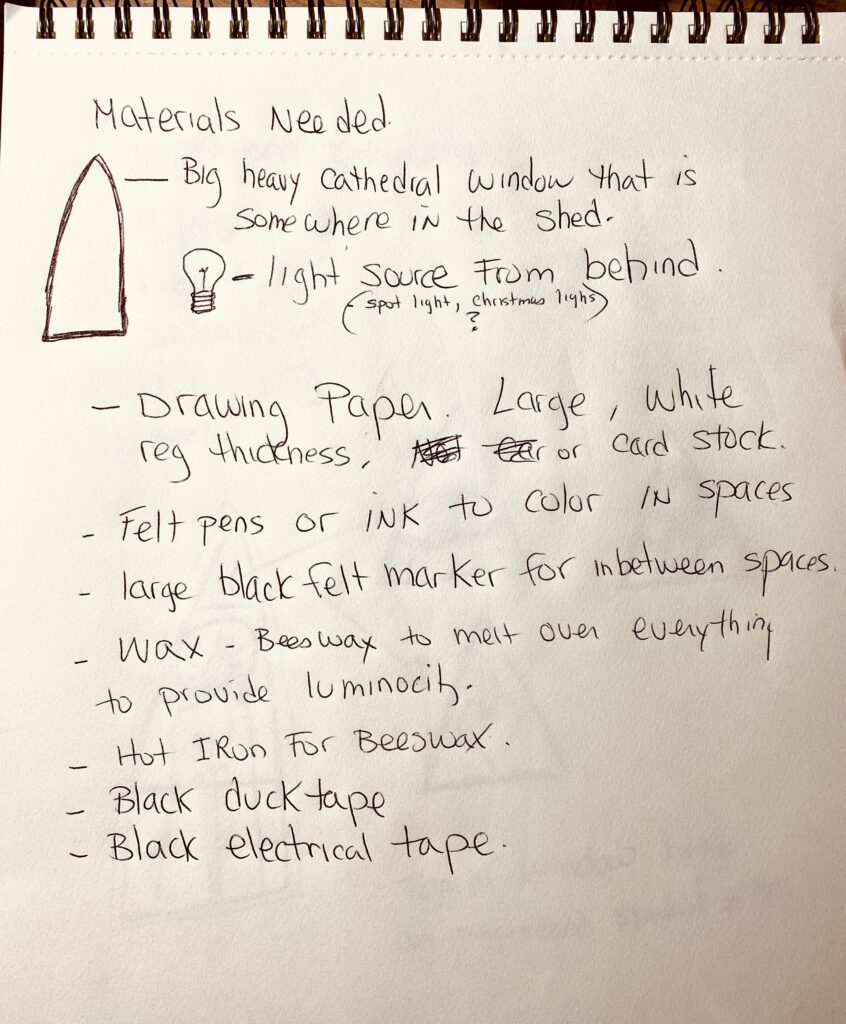 Materials Needed.
— Big heavy cathedral window that is
somewhere in the shed.
- light source from behind.
(spot light, christmas lighs)
?
- Drawing Paper. Large, white
reg thickness, or card stock.
- Felt pens or ink to color in spaces
- large black felt marker for inbetween spaces.
- Wax - Beeswax to melt over everything
to provide luminocity.
- Hot Iron For Beeswax.
- Black duck tape
- Black electrical tape.